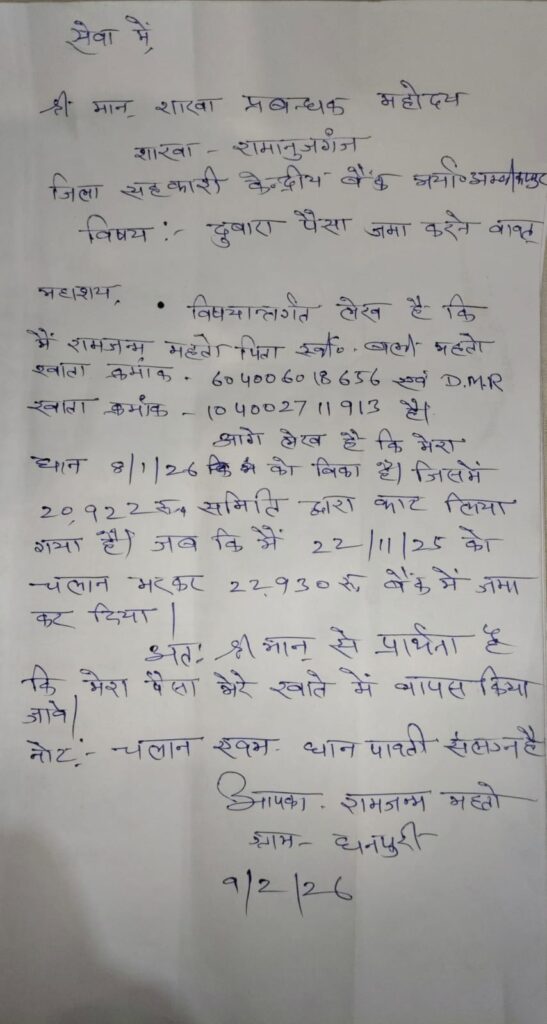 सेवा में,
श्री मान् शाखा प्रबन्धक महोदय
शाखा - रामानुजगंज
जिला सहकारी केन्द्रीय बैंक मर्या०
विषय :- दुबारा पैसा जमा करने वाबत्
महाशय,
• विषयान्तर्गत लेख है कि
मैं रामजन्म महतो पिता स्व०. महतो
खाता क्रमांक - 604006018656 एवं D.M.R
खाता क्रमांक - 104002711913 है।
आगे लेख है कि मेरा
धान 8/1/26 को बिका है। जिसमें
20,922 रु० समिति द्वारा काट लिया
गया है। जब कि मैं 22/11/25 को
चलान भरकर 22,930 रु. बैंक में जमा
कर दिया।
अतः श्री मान् से प्रार्थना है
कि मेरा पैसा मेरे खाते में वापस किया
जावे।
नोट :- चलान एवम धान पावती संलग्न है
आपका. रामजन्म महतो
ग्राम - धनपुरी
9/2/26